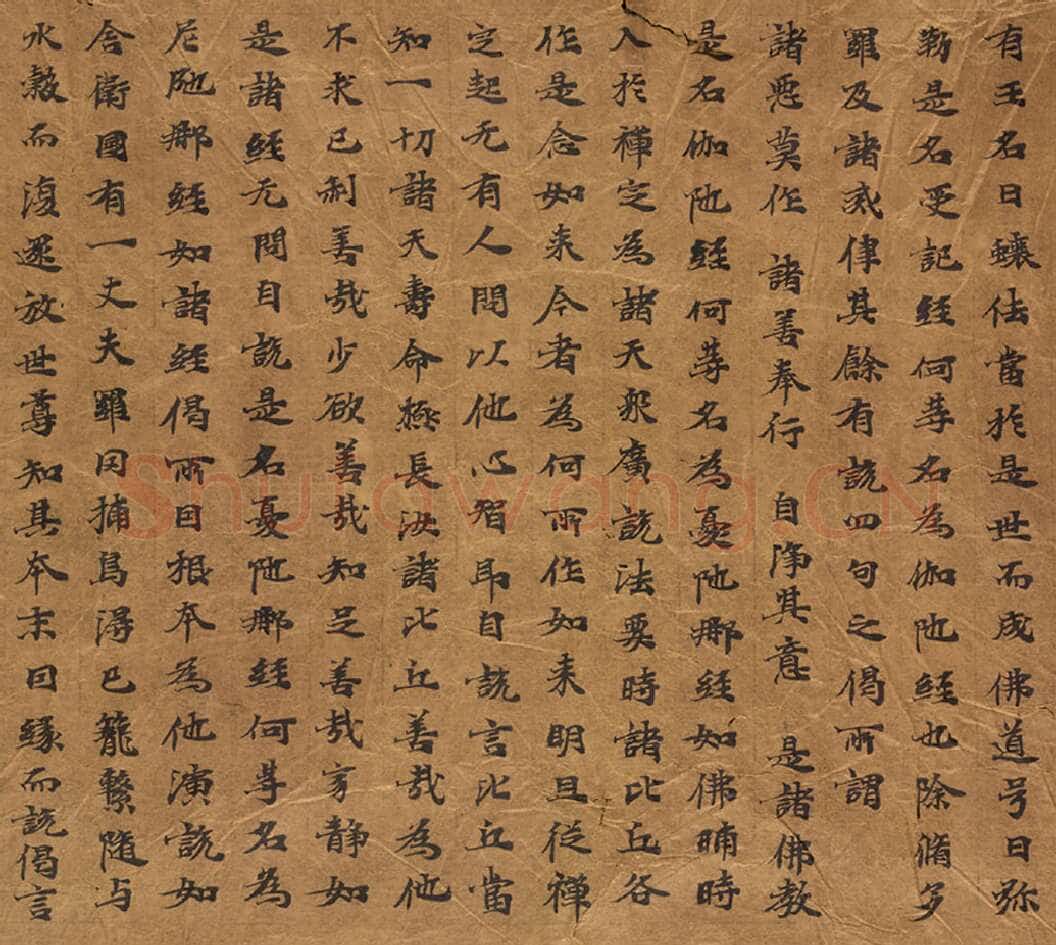 有王名曰蠰佉當於是世而成佛道号曰弥
勒是名受記経何䓁名為伽陁経也除脩多
羅及諸戒律其餘有説四句之偈所謂
諸惡莫作 諸善奉行 自淨其意 是諸佛教
是名伽陁経何䓁名為憂陁䣑経如佛晡時
入於禪定為諸天衆廣説法要時諸比丘各
作是念如来今者為何所作如来明旦従禪
定起无有人問以他心智即自説言比丘當
知一切諸天壽命極長汝諸比丘善㢤為他
不求己利善㢤少欲善㢤知足善㢤家静如
是諸経无問自説是名憂陁䣑経何䓁名為
尼陁䣑経如諸経偈所因根本為他演説如
舎衛國有一丈夫羅罔捕鳥得已籠繫隨与
水糓而復還放世尊知其本末因縁而説偈言
Shufawang.CN